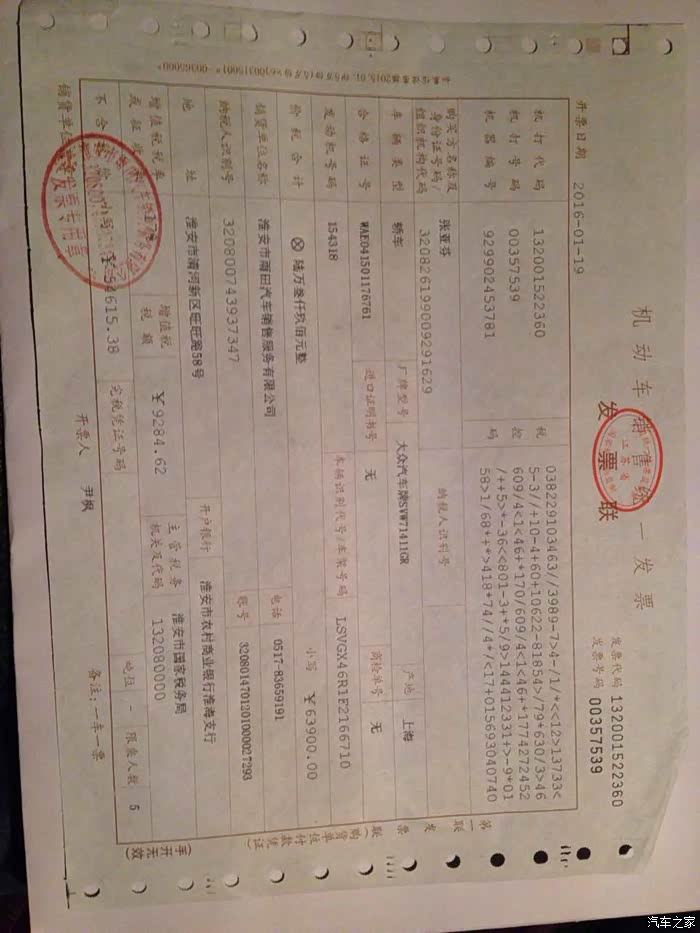 机动车销售统一发票
发票联
发票代码 132001522360
发票号码 00357539
开票日期 2016-01-19
机打代码 132001522360
机打号码 00357539
机器编号 929902453781
税控码
038229103463//3989-7>4-/1/*<<12>13733<
5-3//+10-4+60+10622-81854>/79*630/3>46
609/4<1<46+*170/609/4<1<46+*1774272452
/++5>*-36<<801-3+*5/9>144412331+>-9*01
58>1/68*+*>418*74//4*/<17+015693040740
购买方名称及身份证号码/组织机构代码 张亚芬
320826199009291629
纳税人识别号
车辆类型 轿车 厂牌型号 大众汽车牌SVW71411GR 产地 上海
合格证号 WAE041501176761 进口证明书号 无 商检单号 无
发动机号码 154318 车辆识别代号/车架号码 LSVGX46R1F2166710
价税合计 ⊗ 陆万叁仟玖佰元整 小写 ￥63900.00
销货单位名称 淮安市雨田汽车销售服务有限公司 电话 0517-83659191
纳税人识别号 320800743937347 账号 3208014701201000027293
地址 淮安市清河新区旺旺路58号 开户银行 淮安市农村商业银行淮海支行
增值税税率或征收率 17% 增值税税额 ￥9284.62 主管税务机关及代码 淮安市国家税务局
132080000
不含税价 小写 ￥54615.38 完税凭证号码 吨位 - 限乘人数 5
销货单位 开票人 尹枫 备注:一车一票
第一联 发票联(购货单位付款凭证)
(手开无效)
发票专用章
江苏省
汽车之家